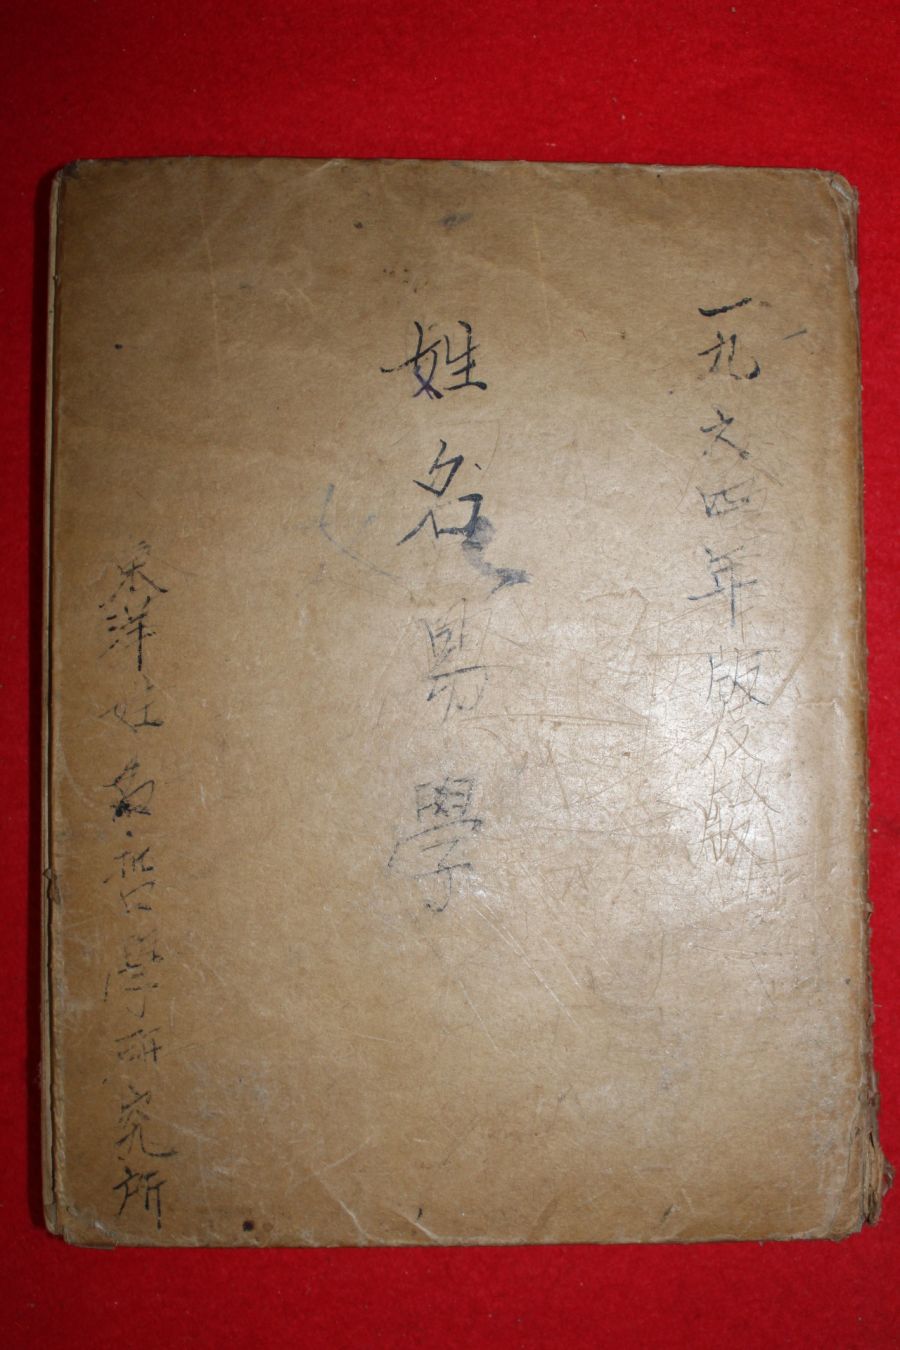 一九六四年版
姓名易學
東洋姓名哲學研究所